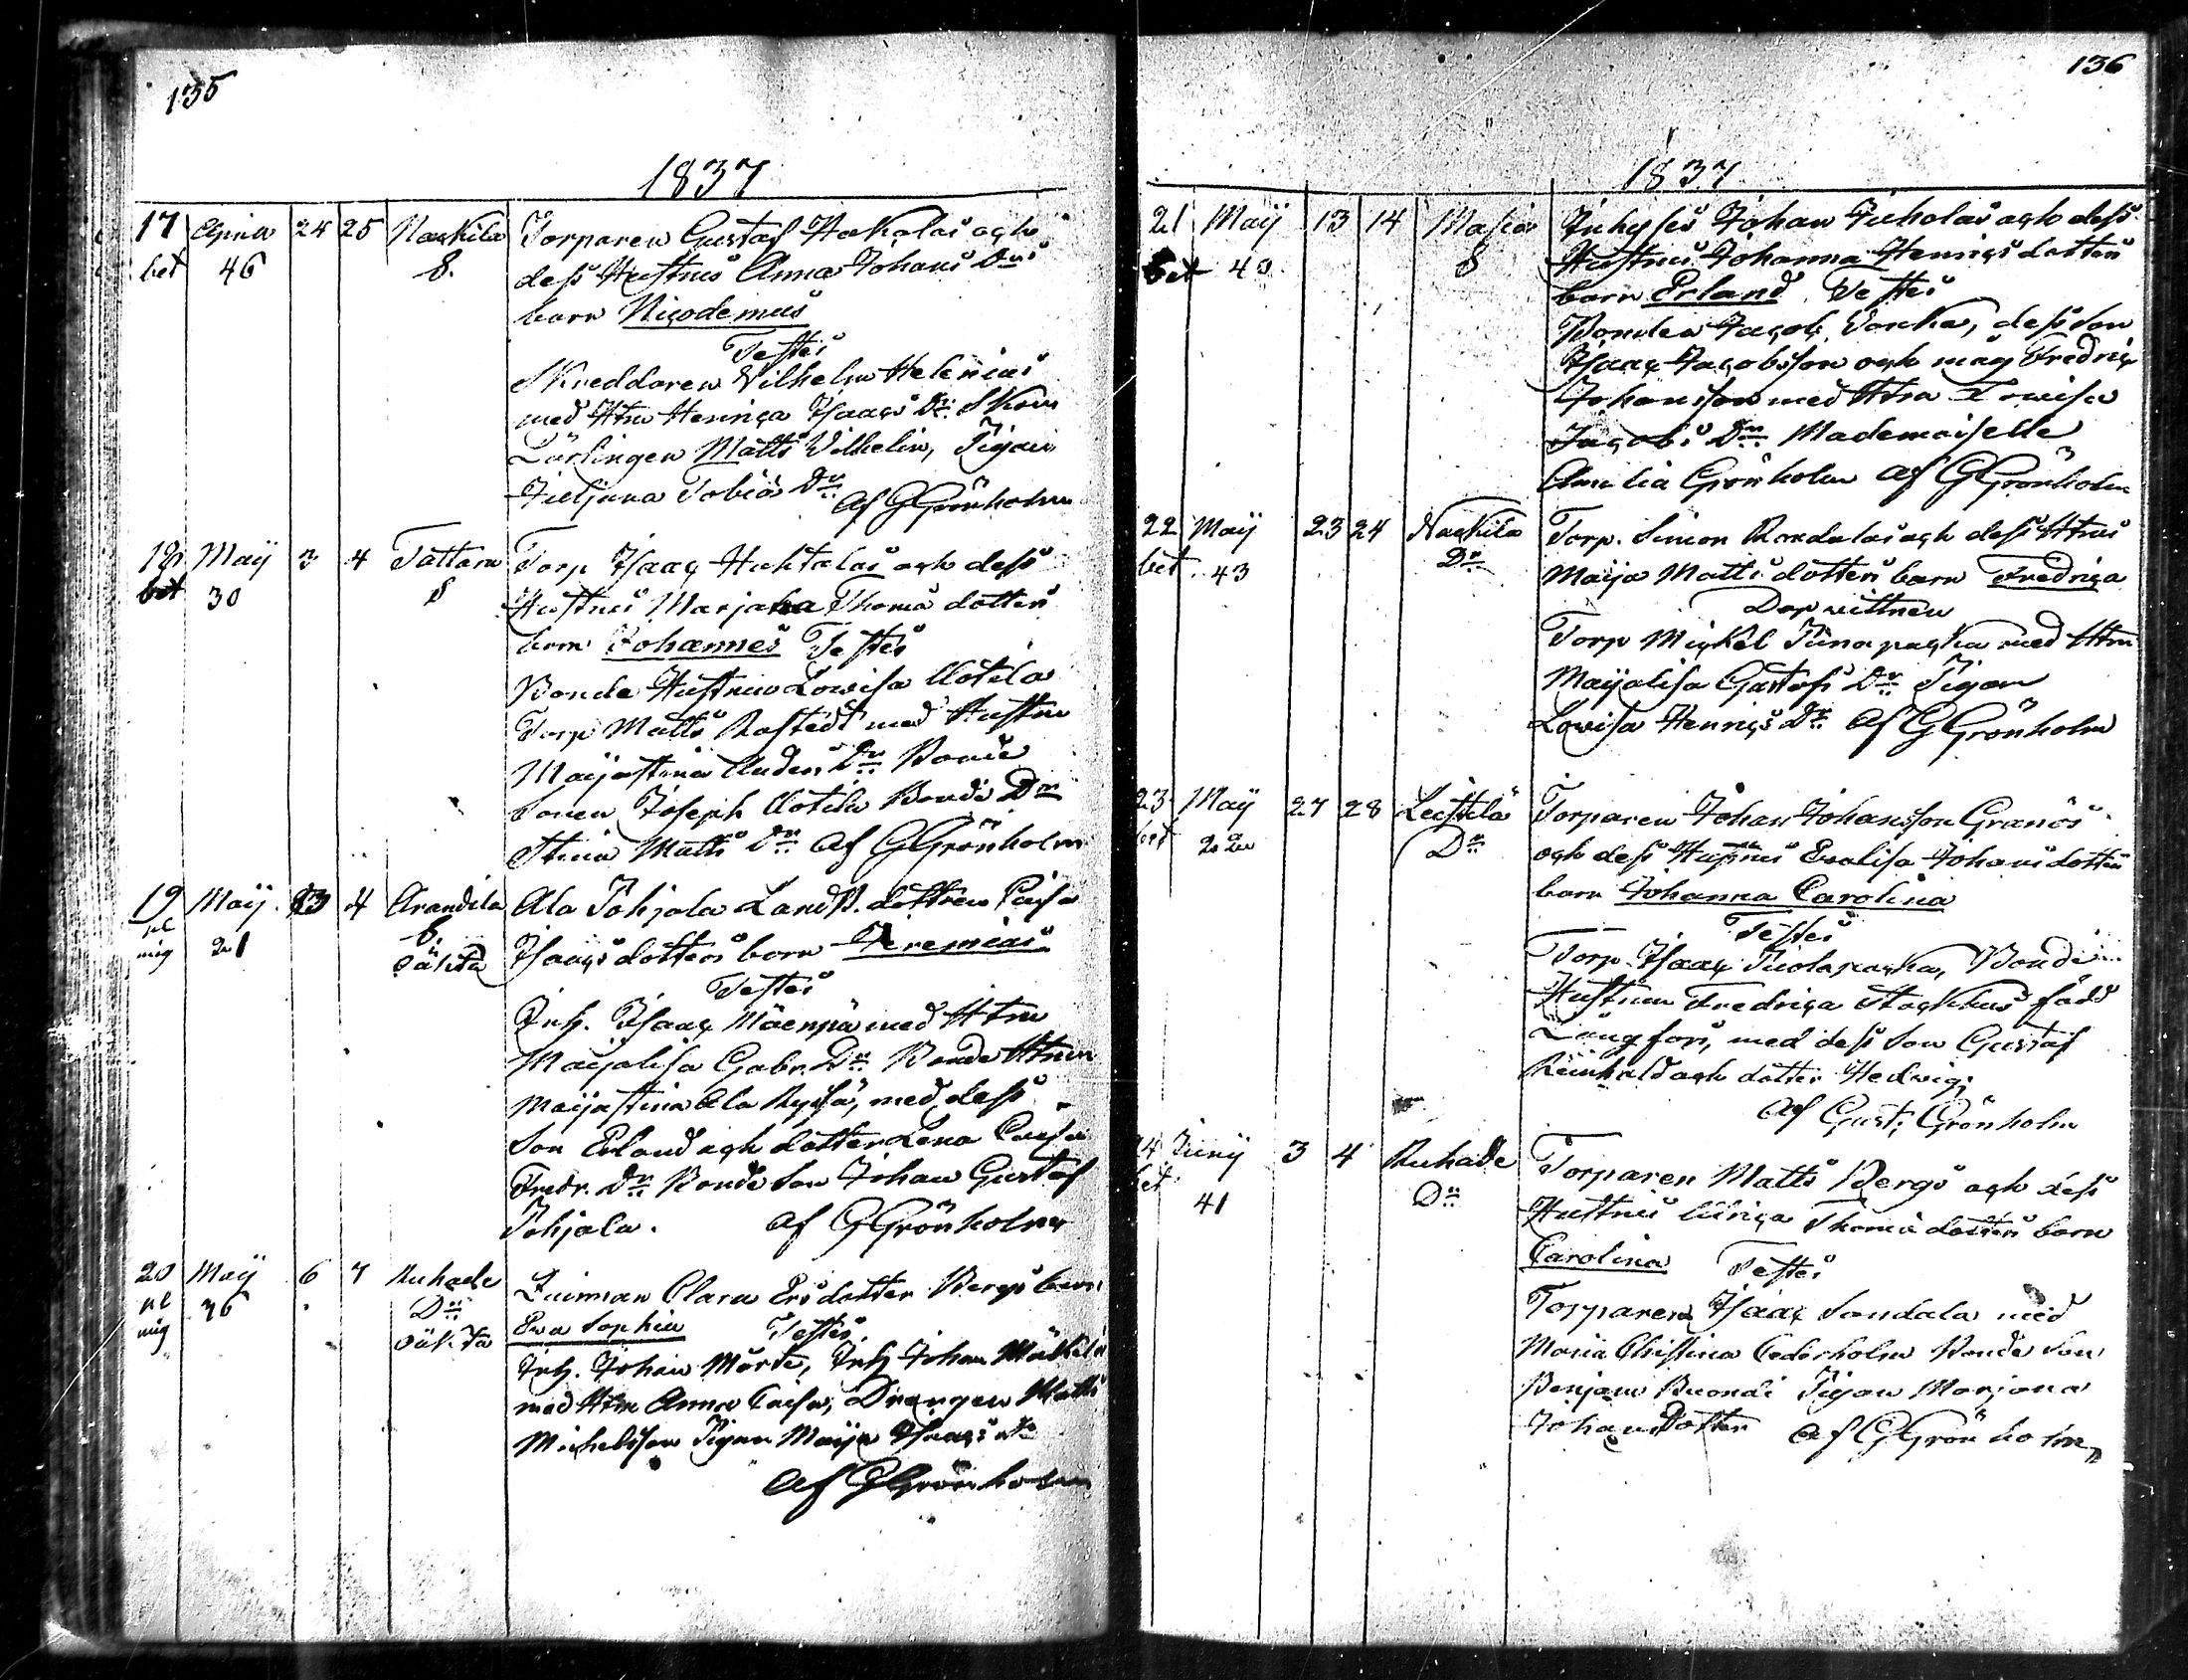 135
1837
17 Aprill 24 25 Naskila Torparen Gustaf Hakalas och
bet 46 S. dess Hustrus Anna Johans Drs
barn Nicodemus
Testes
Skreddaren Vilhelm Helenius
med Htru Henrica Isaacs Dr Skom
Lärlingen Matts Vilhelm, Pigan
Juljana Tobiä Dr
af G Grönholm
18 Maij 3 4 Tattara Torp Isaac Huhtalas och dess
bet 30 S Hustrus Marjana Thomä dotters
barn Johannes Testes
Bonde Hustrun Lowisa Uotila
Torp Matts Rostedt med Hustru
Maijastina Anders Dr Bonde
sonen Joseph Uotila Bonde Dr
Stina Matts Dr af G Grönholm
19 Maij 13 14 Arandila Ala Pohjala LandB. dottren Caisa
21 Isaacs dotters barn Jeremias
mig oäkta Testes
Inh. Isaac Mäenpä med Htru
Maijalisa Gabr. Dr Bonde Htrun
Maijastina Ala, med dess
Son Erland och dotter Lena Caisa
Fredr. Dr Bonde Son Johan Gustaf
Pohjala. af G Grönholm
20 Maij 6 7 Ruhade Qvinnan Clara Ersdotter Bergs barn
36 Dr Eva Sophia Testes
mig oäkta Inh. Johan Mört, Inh Johan Mäkilä
med Htru Anna Caisa, Drengen Matts
Michelsson Pigan Maija Isaacs dr
af G Grönholm
136
1837
21 Maij 13 14 Masia Inhyses Johan Juholas och dess
bet 40 S Hustrus Johanna Henrics dotters
barn Erland Testes
Bonden Jacob, dess son
Isaac Jacobsson och måg Fredric
Johansson med Htru Lowisa
Jacobs Dr Mademoiselle
Amalia Grönholm af G Grönholm
22 Maij 23 24 Naskila Torp. Simon Rondalas och dess Htrus
bet 43 Dr Maija Matts dotters barn Fredrica
Dopvittnen
Torp Mickel med Htru
Maijalisa Gustafs Dr Pigan
Lowisa Henrics Dr af G Grönholm
23 Maij 27 28 Leistilä Torparen Johan Johansson Granös
bet 22 Dr och dess Hustrus Evalisa Johans dotters
barn Johanna Carolina
Testes
Torp. Isaac, Bonde
Hustrun Fredrica Stackhus född
Långfors, med dess Son Gustaf
Reinhold och dotter Hedvig;
af Gust: Grönholm
24 Junij 3 4 Ruhade Torparen Matts Bergs och dess
bet 41 Dr Hustrus Ulrica Thomä dotters barn
Carolina Testes
Torparen Isaac Sandala med
Maria Christina Cederholm Bonde Son
Benjam Buordi Pigan Marjana
Johans Dotter af G Grönholm